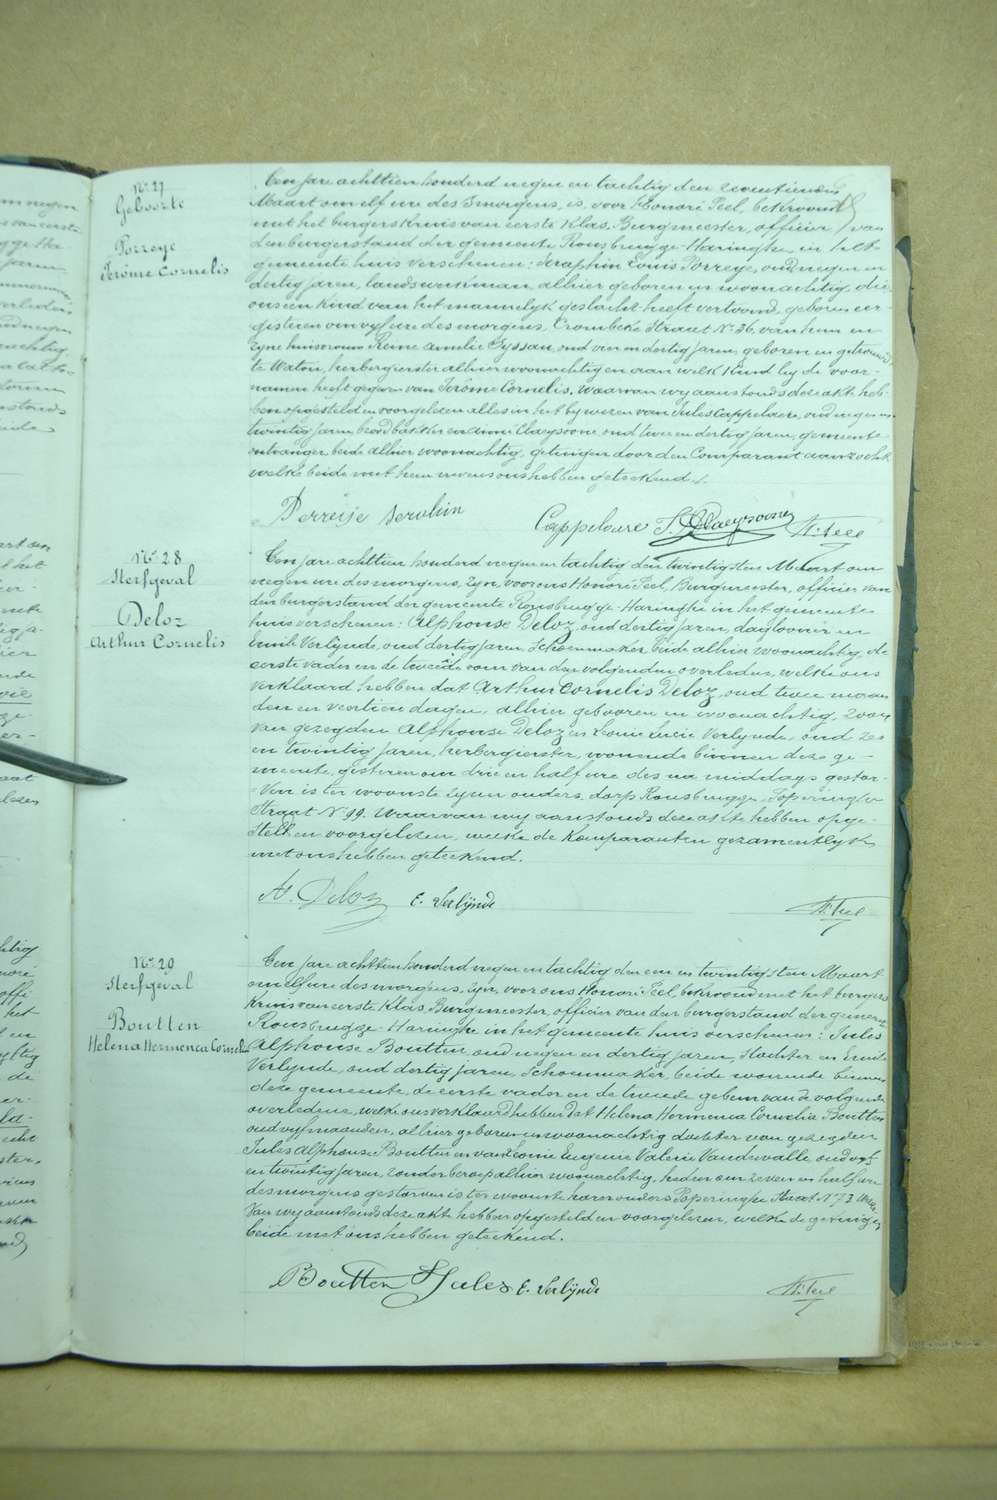 No 27
Geboorte
Porreye
Jeróme Cornelis
Een jare achttien honderd negen en tachtig den zeventienden
Maart om elf ure des smorgens, is, voor Honoré Peel, bekroond
met het burgers kruis van eerste Klas, Burgmeester, officier van
den burgerstand der gemeente Rousbrugge-Haringhe, in het
gemeente huis verschenen: Seraphin Louis Porreye, oud negen en
dertig jaren, landswerkman, alhier geboren en woonachtig, die
ons een kind van het mannelyk geslacht heeft vertoond, geboren eer-
gisteren om vyf ure des morgens, Crombeke Straat No 36, van hem en
zyne huisvrouw Reine Amelie Gyssau, oud vier en dertig jaren, geboren en getrouwd
te Watou, herbergierster alhier woonachtig en aan welk Kind hy de voor-
namen heeft gegeven van Jeróme Cornelis. Waarvan wy aanstonds deze akt heb-
ben opgesteld en voorgelezen alles in het bywezen van Jules Cappelaere, oud negen en
twintig jaren broodbakker en Aimé Claeysoone oud twee en dertig jaren, gemeente
ontvanger beide alhier woonachtig, getuigen door den Comparant aanzocht
welke beide met hem nevens ons hebben geteekend.
Perreije Serohin Cappelaere Claeysoone H. Peel
No 28
Sterfgeval
Deloz
Arthur Cornelis
Een jare achttien honderd negen en tachtig den twintigsten Maart om
negen ure des morgens, zyn, voor ons Honoré Peel, Burgmeester, officier van
den burgerstand der gemeente Rousbrugge-Haringhe in het gemeente
huis verschenen: Alphonse Deloz, oud dertig jaren, daglooner en
Emile Verlynde, oud dertig jaren, Schoenmaker, beide alhier woonachtig, de
eerste vader en de tweede oom van den volgenden overleden, welke ons
verklaard hebben dat Arthur Cornelis Deloz, oud twee maan
den en veertien dagen, alhier gebooren en woonachtig, zoon
van gezegden Alphonse Deloz en Leonie Lucie Verlynde, oud zes
en twintig jaren, herbergierster, wonende binnen deze ge-
meente, gisteren om drie en half ure des na middags gestor-
ven is ter woonste zynen ouders, dorp Rousbrugge, Poperinghe
Straat No 99. Waarvan wy aanstonds deze akte hebben opge-
steld en voorgelezen, welke de Komparanten gezamentlyk
met ons hebben geteekend.
A. Deloz E. Verlijnde H. Peel
No 29
Sterfgeval
Boutten
Helena Hermenca Cornelia
Een jare achttien honderd negen en tachtig den een en twintigsten Maart
om elf ure des morgens, zyn, voor ons Honoré Peel, bekroond met het burgers
Kruis van eerste Klas, Burgmeester, officier van den burgerstand der gemeente
Rousbrugge-Haringhe in het gemeente huis verschenen: Jules
Alphonse Boutten, oud negen en dertig jaren, Slachter en Emile
Verlynde, oud dertig jaren, Schoenmaker, beide wonende binnen
deze gemeente, de eerste vader en de tweede gebuur van de volgende
overledene, welke ons verklaard hebben dat Helena Hermenca Cornelia Boutten
oud vyf maanden, alhier geboren en woonachtig dochter van gezegden
Jules Alphonse Boutten en van Leonie Eugenie Valerie Vandewalle oud vyf
en twintig jaren, zonder beroep alhier woonachtig, heden om zeven en half ure
des morgens gestorven is ter woonste harer ouders Poperinghe Straat No 73 Waar-
van wy aanstonds deze akte hebben opgesteld en voorgelezen, welke de getuigen
beide met ons hebben geteekend.
Boutten Jules E. Verlijnde H. Peel